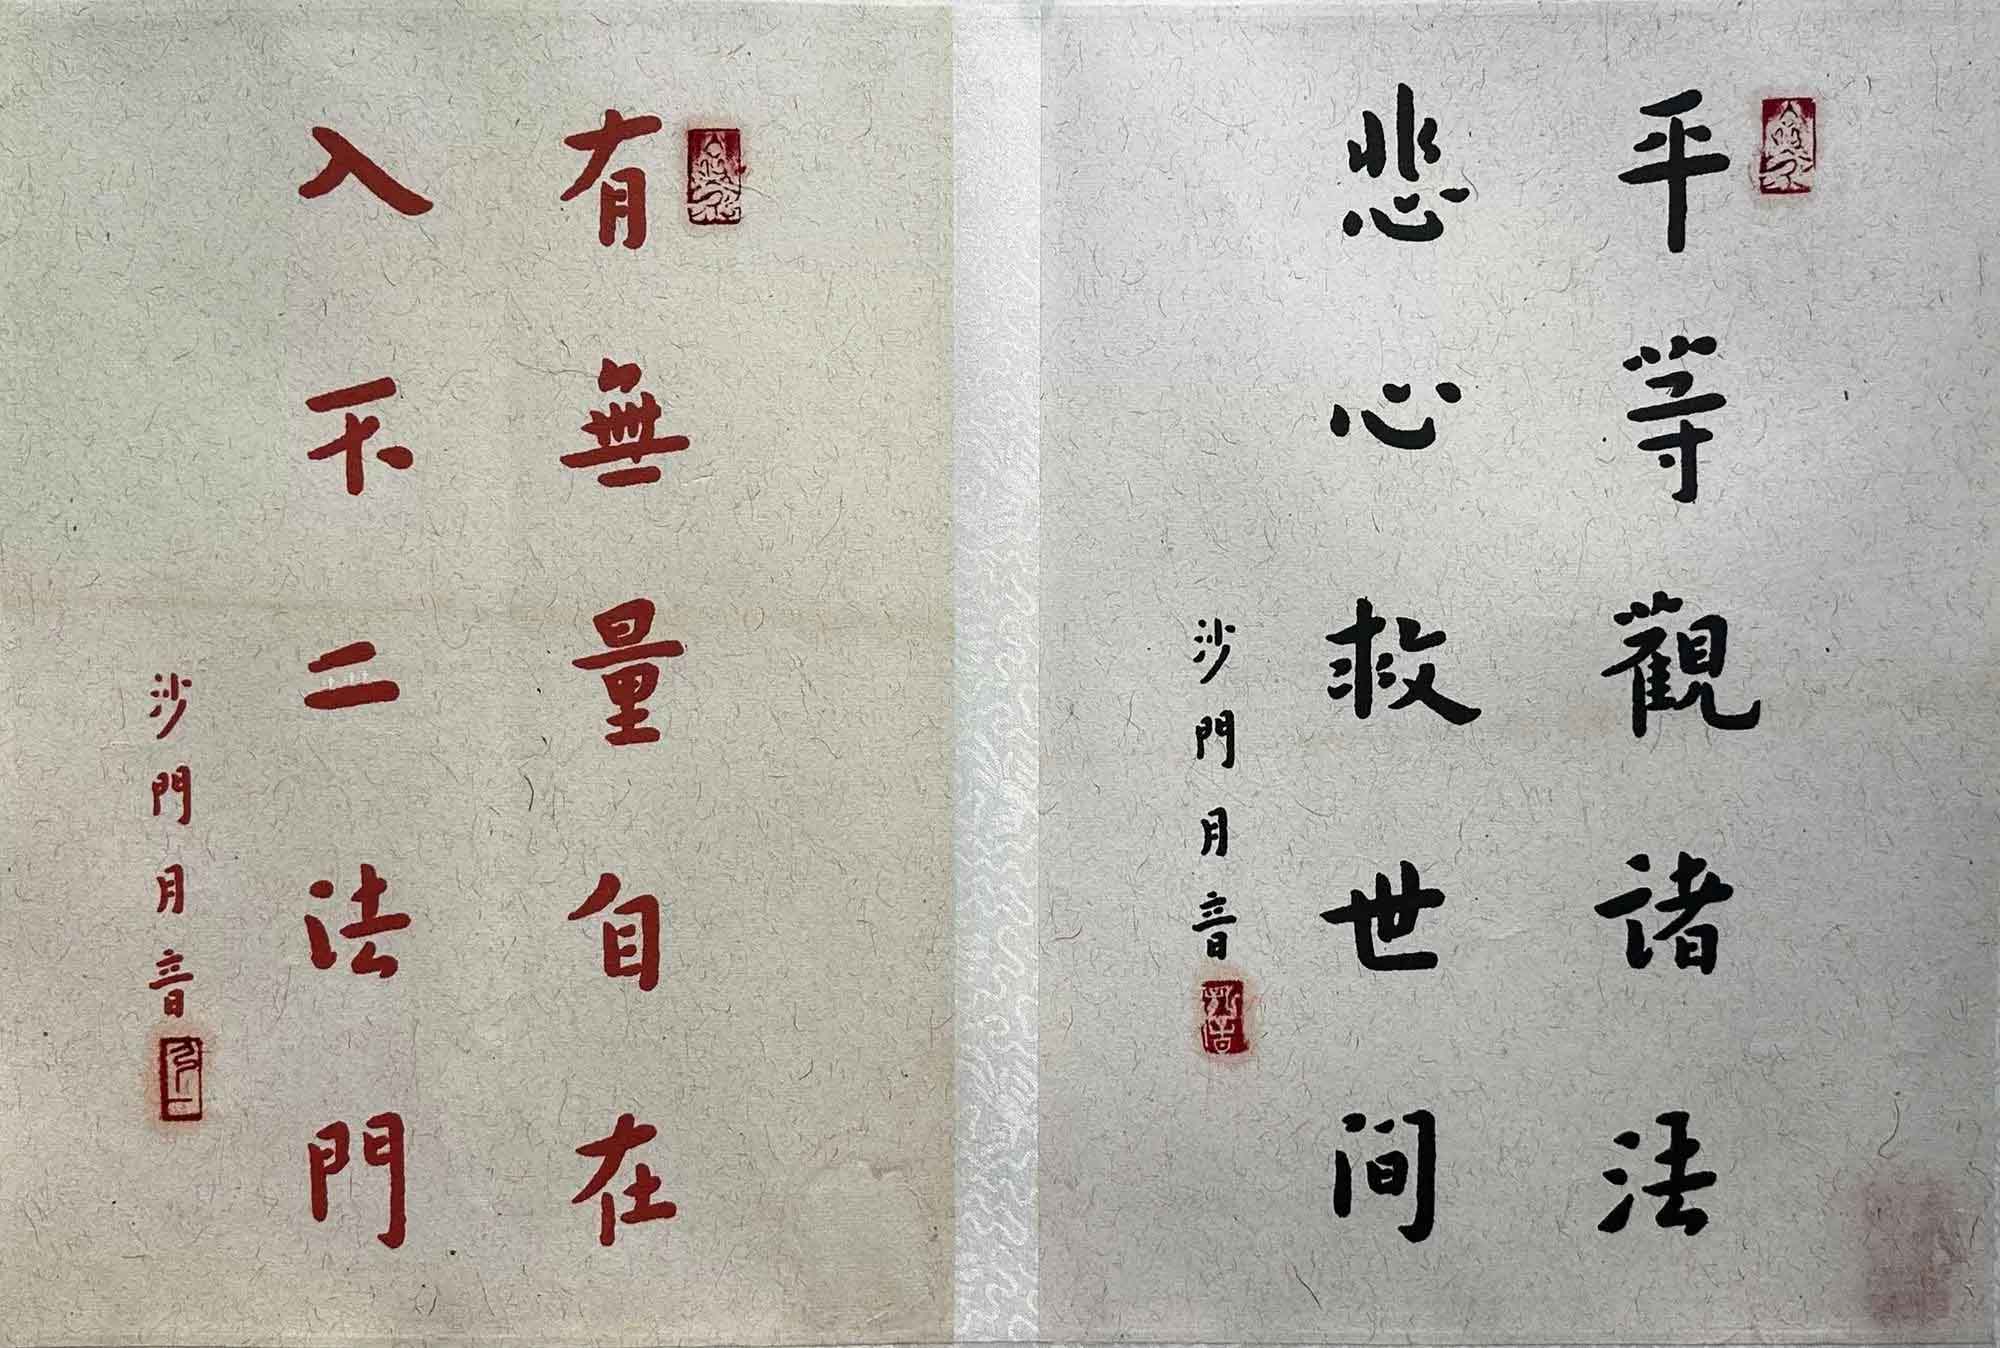 平等觀諸法
悲心救世间
沙門月音
有無量自在
入不二法門
沙門月音